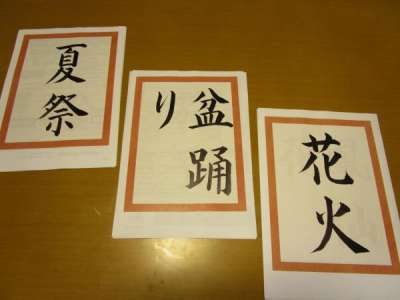 夏祭
盆踊
り
花火